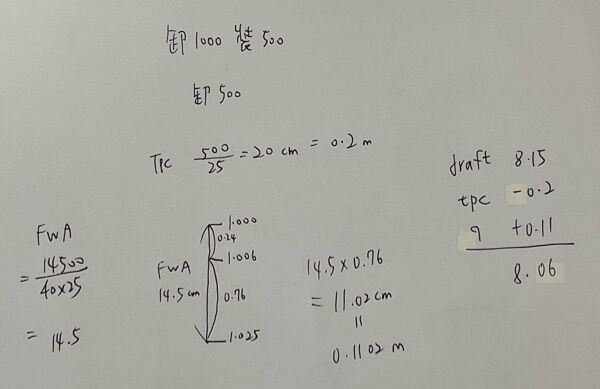 卸 1000 裝 500
卸 500
TPC 500/25 = 20 cm = 0.2 m
draft 8.15
tpc -0.2
q +0.11
8.06
FWA
= 14500/40x25
= 14.5
FWA
14.5 cm
1.000
0.24
1.006
0.76
1.025
14.5 x 0.76
= 11.02 cm
=
0.1102 m